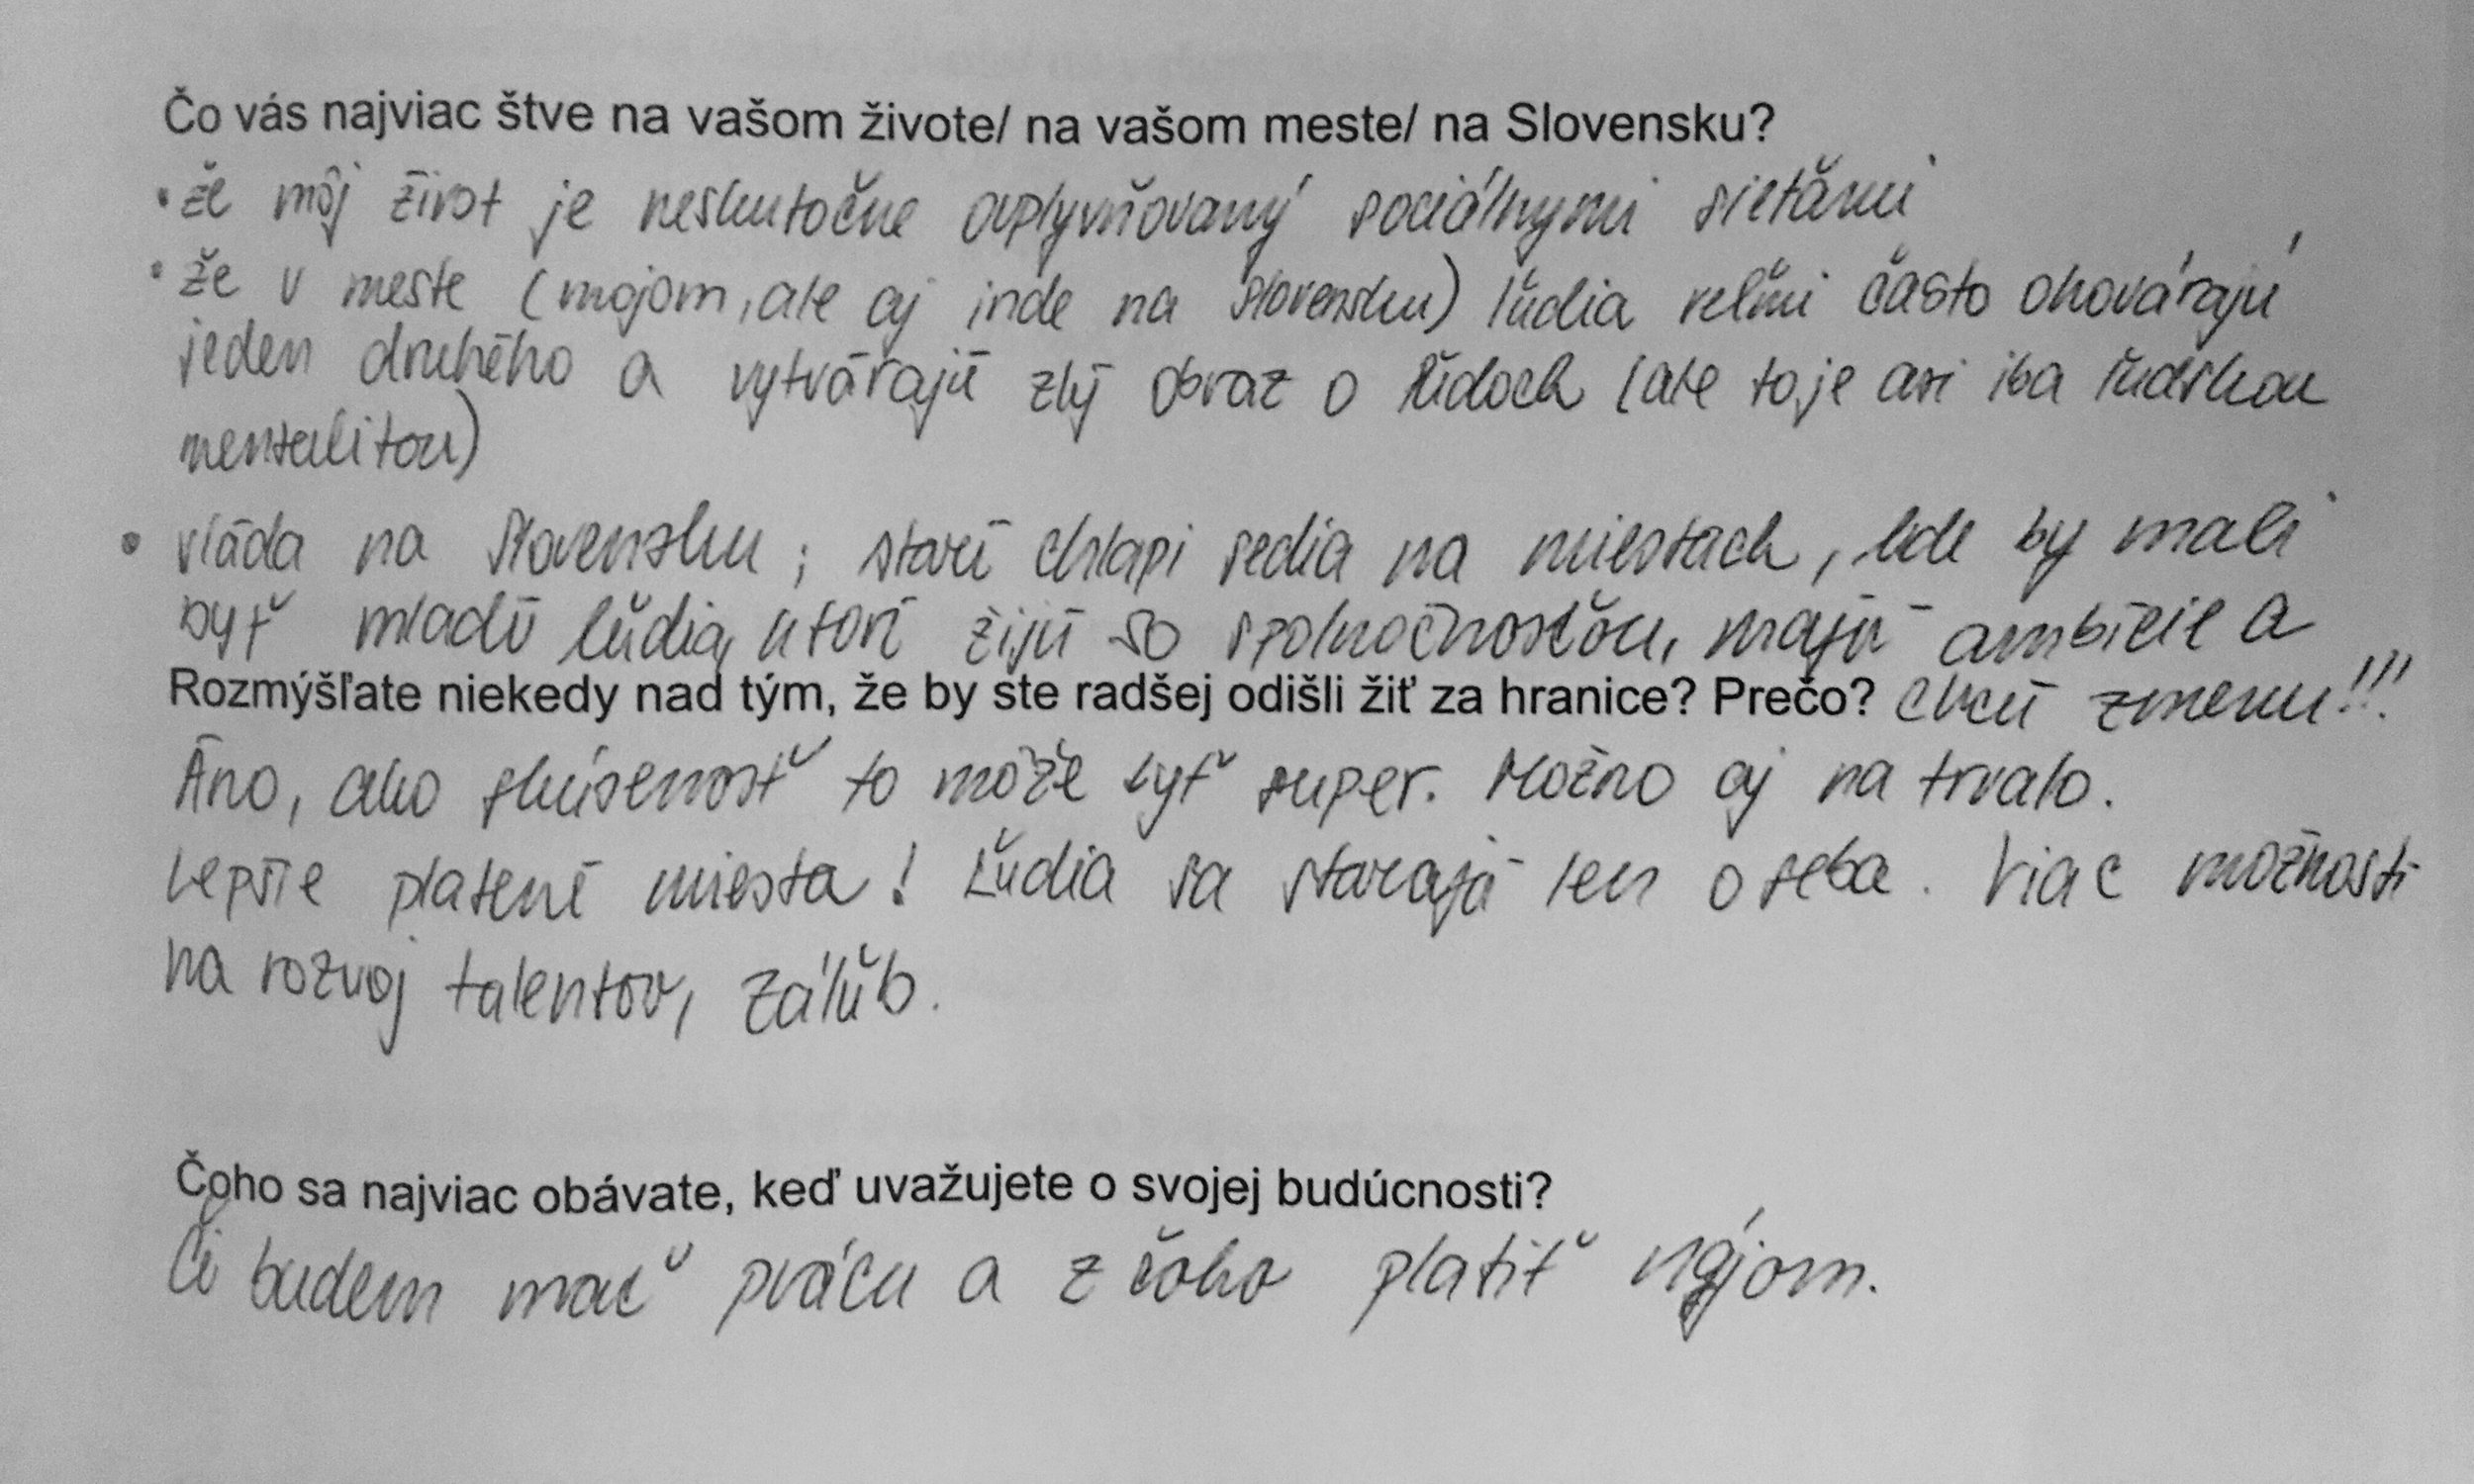 Čo vás najviac štve na vašom živote/ na vašom meste/ na Slovensku?
• že môj život je neskutočne ovplyvňovaný sociálnymi sieťami
• že v meste (mojom, ale aj inde na Slovensku) ľudia veľmi často ohovárajú
jeden druhého a vytvárajú zlý obraz o ľuďoch (ale to je asi iba ľudskou
mentalitou)
• vláda na Slovensku; starí chlapi sedia na miestach, kde by mali
byť mladí ľudia, ktorí žijú so spoločnosťou, majú ambície a
Rozmýšľate niekedy nad tým, že by ste radšej odišli žiť za hranice? Prečo? chcú zmenu!!!
Áno, ako skúsenosť to môže byť super. Možno aj na trvalo.
Lepšie platené miesta! Ľudia sa starajú len o seba. Viac možností
na rozvoj talentov, záľub.
Čoho sa najviac obávate, keď uvažujete o svojej budúcnosti?
Či budem mať prácu a z čoho platiť nájom.